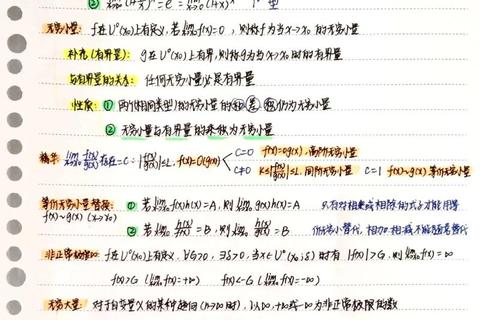 ② lim(1+x)^(1/x) = e = lim(1+x)^(1/x) 1^∞型
无穷小量: f在U°(x₀)上有定义,若lim f(x)=0,则称f为当x→x₀的无穷小量
补充(有界量): g在U°(x₀)上有界,则称g为当x→x₀时的有界量
与有界量的关系: 任何无穷小量必是有界量
性质: ① 两个(相同类型)的无穷小量的和、差、积仍为无穷小量
② 无穷小量与有界量的乘积为无穷小量
lim f(x)/g(x) 存在=C: |f(x)/g(x)|≤L, f(x)=O(g(x)) C=0 f(x)=o(g(x)), 高阶无穷小
C≠0 K≤|f(x)/g(x)|≤L, 同阶无穷小 C=1 f(x)~g(x) 等价无穷小
等价无穷小量替换: ① 若lim f(x)h(x)=A, 则lim g(x)h(x)=A 只有对相乘或相除的式子才能用等
f(x)~g(x) (x→x₀) ② 若lim h(x)/f(x)=B, 则lim h(x)/g(x)=B 价无穷小替代, 相加、相减不能随意替代
非正常极限: f在U°(x₀)上有定义, ∀G>0, ∃δ>0, 当x∈U°(x₀;δ)时有|f(x)|>G, 则lim f(x)=∞
f(x)>G (lim f(x)=+∞) f(x)<-G (lim f(x)=-∞)
无穷大量: 对于自变量x的某种趋向(n→∞时), 以∞, +∞或-∞为非正常极限的函数